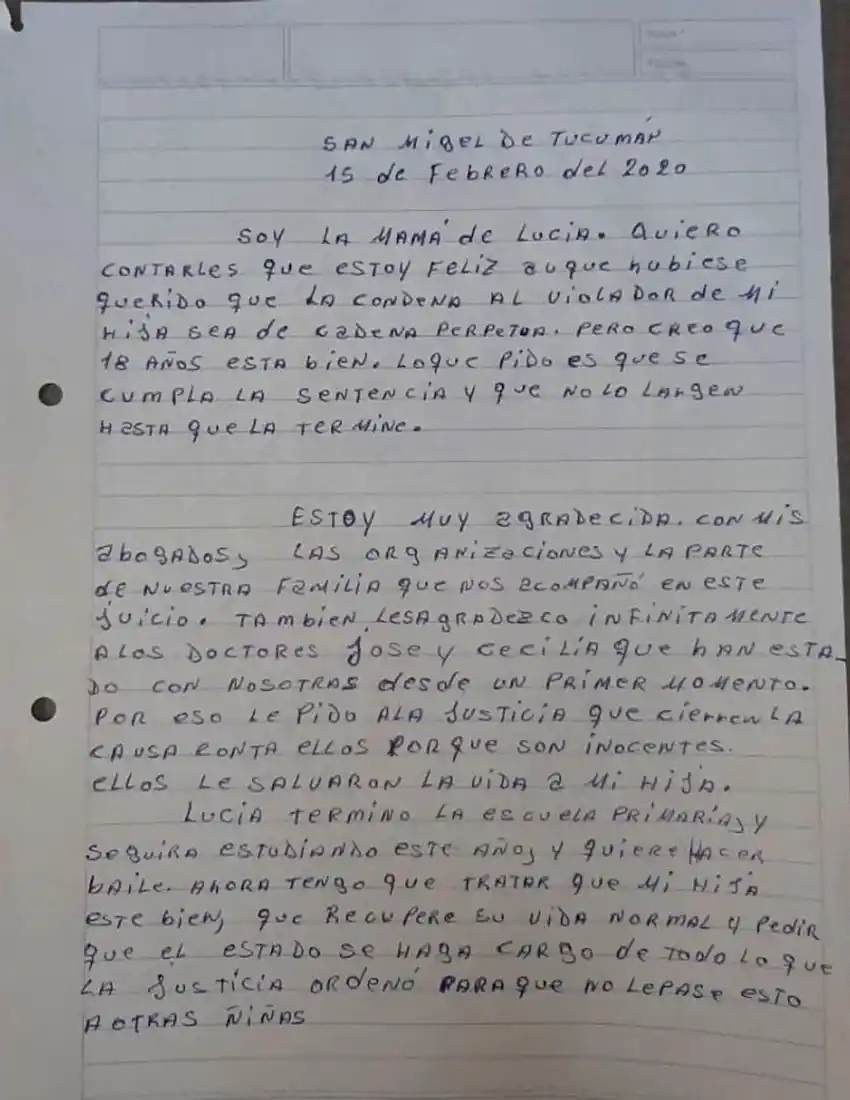 SAN MIGEL DE TUCUMÁN
15 de FEBRERO del 2020
SOY LA MAMÁ de LUCIA. QUIERO
CONTARLES que ESTOY FELIZ auque hubiese
querido que LA CONDENA AL VIOLADOR de MI
HIJA SEA de CADENA PERPETUA. PERO CREO que
18 AÑOS ESTA bien. LOQUE PIDO es que se
CUMPLA LA SENTENCIA Y que NO LO LARGEN
HASTA que LA TERMINE.
ESTOY MUY AGRADECIDA. CON MIS
abogados, LAS ORGANIZACIONES Y LA PARTE
de NUESTRA FAMILIA que NOS ACOMPAÑÓ EN ESTE
JUICIO. TAMBIEN LESAGRADEZCO INFINITAMENTE
ALOS DOCTORES JOSE Y CECILIA que hAN ESTA_
DO CON NOSOTRAS desde UN PRIMER MOMENTO.
POR ESO LE PIDO ALA JUSTICIA que CIERREN LA
CAUSA CONTA ELLOS PORQUE SON INOCENTES.
ELLOS LE SALVARON LA VIDA A MI HIJA.
LUCIA TERMINO LA ESCUELA PRIMARIA, Y
SEGUIRA ESTUDIANDO ESTE AÑO, Y QUIERE HACER
BAILE. AHORA TENGO que TRATAR que MI HIJA
ESTE bien, que RECUPERE SU VIDA NORMAL Y PEDIR
que EL ESTADO SE HAGA CARGO de TODO LO que
LA JUSTICIA ORDENÓ PARA QUE NO LEPASE ESTO
A OTRAS ÑIÑAS